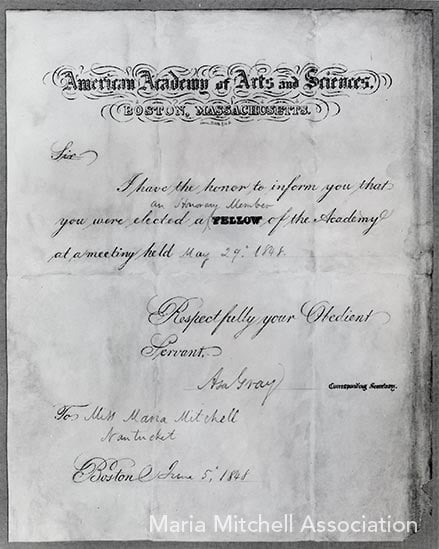 American Academy of Arts and Sciences,
BOSTON, MASSACHUSETTS.
Sir
I have the honor to inform you that
an Honorary Member
you were elected a FELLOW of the Academy
at a meeting held May 29. 1848.
Respectfully your Obedient
Servant,
Asa Gray
Corresponding Secretary.
To Miss Maria Mitchell
Nantucket
Boston June 5, 1848
Maria Mitchell Association